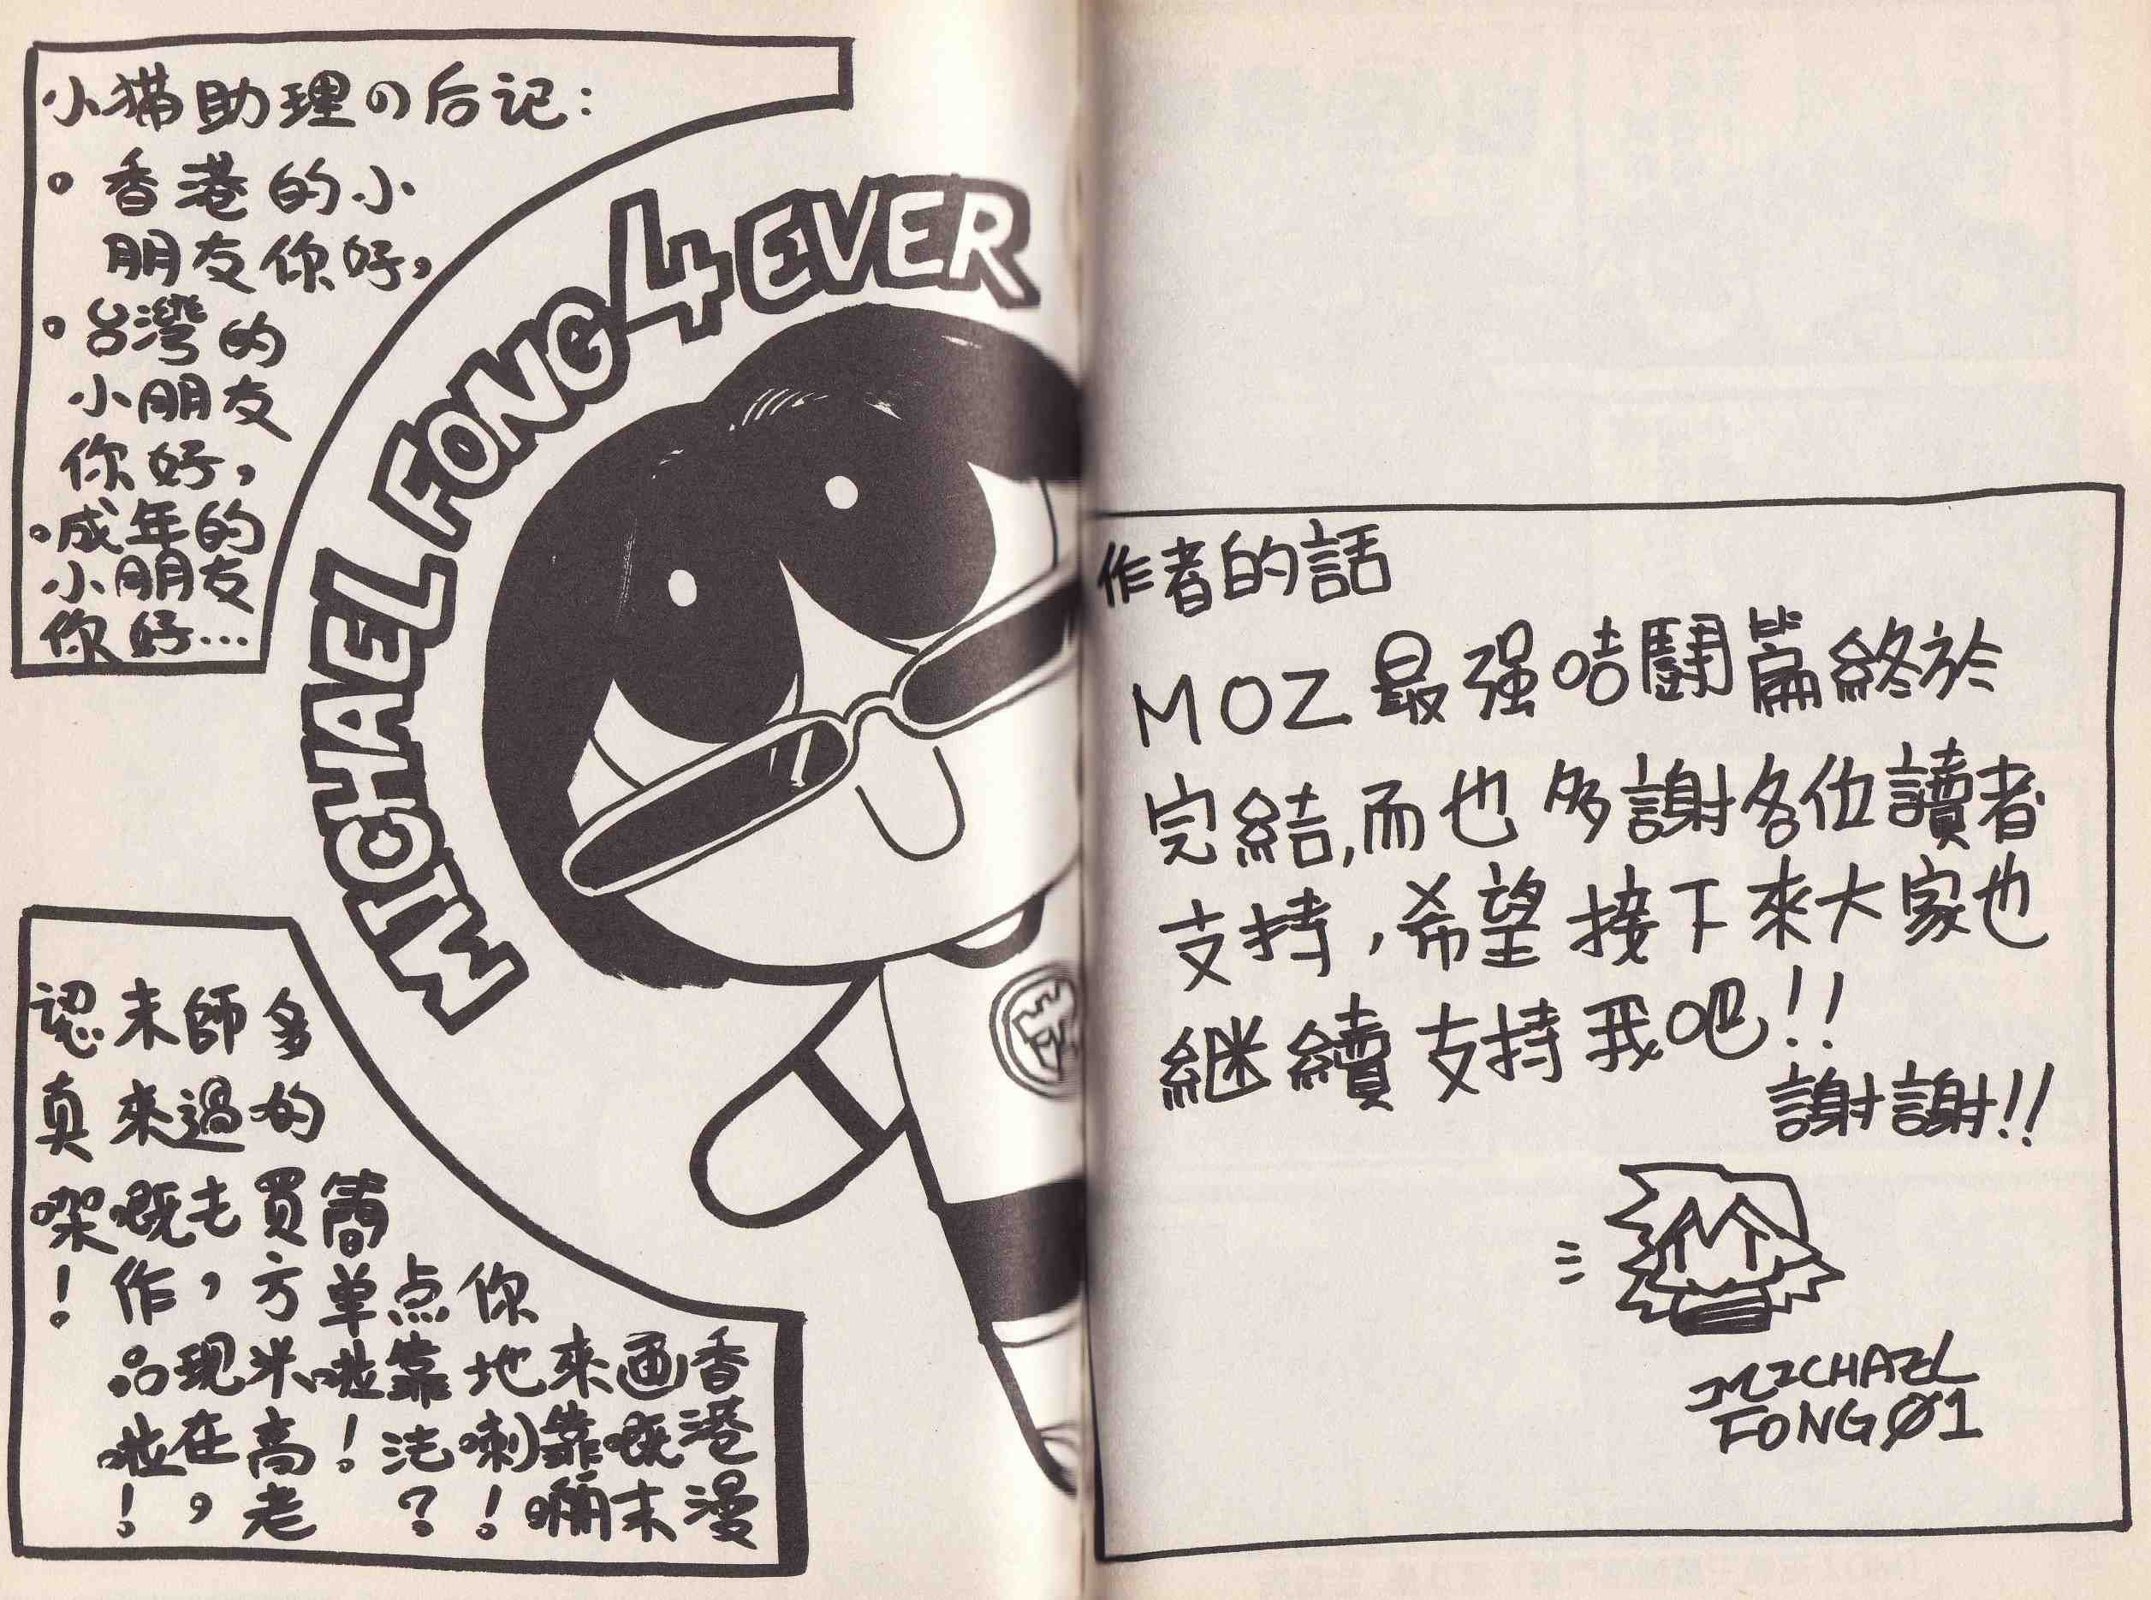 小猫助理の后记：
• 香港的小
朋友你好，
• 台灣的
小朋友
你好，
• 成年的
小朋友
你好…
MICHAEL FONG 4 EVER
香港漫
画嘅未
來靠
你地喇！
点靠法？
簡单啦！
多的買方米高老
師過去，現在，
未來嘅作品啦！
認真㗎！
作者的話
MOZ最强咭鬪篇終於
完結,而也多謝各位讀者
支持,希望接下來大家也
継續支持我吧!!
謝謝!!
MICHAEL
FONG 01